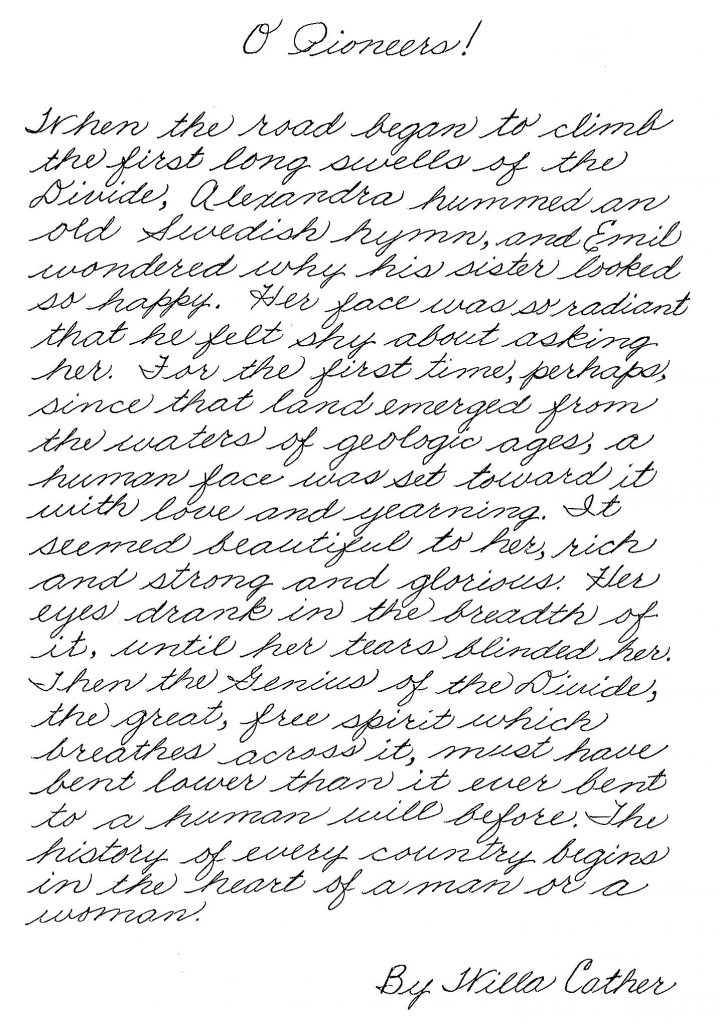 O Pioneers!
When the road began to climb
the first long swells of the
Divide, Alexandra hummed an
old Swedish hymn, and Emil
wondered why his sister looked
so happy. Her face was so radiant
that he felt shy about asking
her. For the first time, perhaps,
since that land emerged from
the waters of geologic ages, a
human face was set toward it
with love and yearning. It
seemed beautiful to her, rich
and strong and glorious. Her
eyes drank in the breadth of
it, until her tears blinded her.
Then the Genius of the Divide,
the great, free spirit which
breathes across it, must have
bent lower than it ever bent
to a human will before. The
history of every country begins
in the heart of a man or a
woman.
By Willa Cather